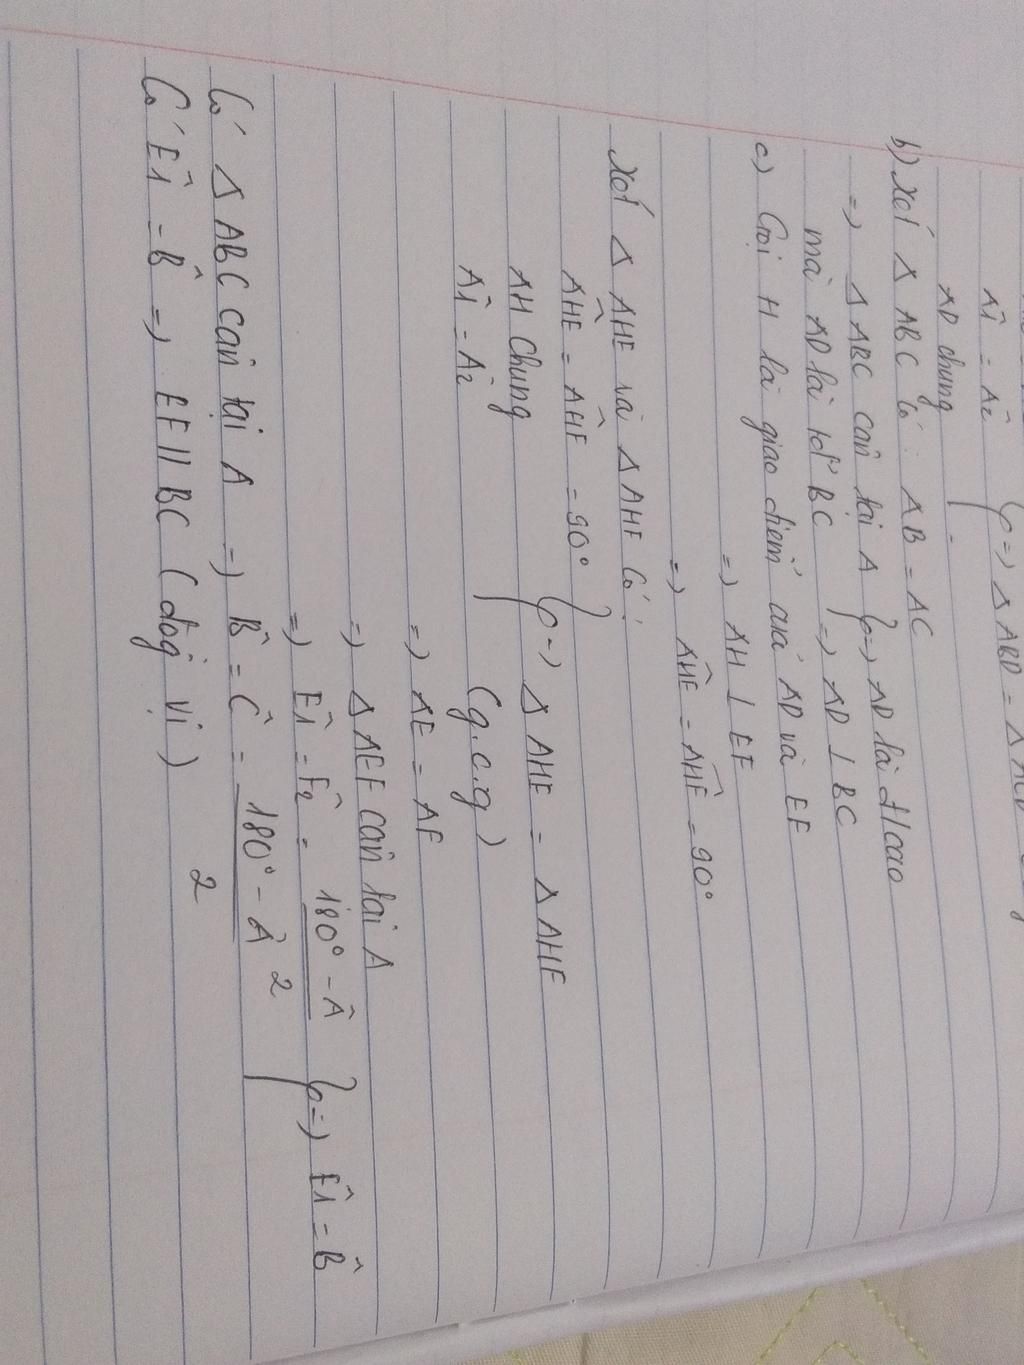 Â1 = Â2 } => Δ ABD = Δ ACD
AD chung
b) Xét Δ ABC có : AB = AC
=> Δ ABC cân tại A } => AD là đ/cao
mà AD là tđ BC => AD ⊥ BC
c) Gọi H là giao điểm của AD và EF
=> AH ⊥ EF
=> AĤE = AĤF = 90°
Xét Δ AHE và Δ AHF có :
AĤE = AĤF = 90° } => Δ AHE = Δ AHF
AH chung (g.c.g)
Â1 = Â2
=> AE = AF
=> Δ AEF cân tại A
=> Ê1 = F̂2 = 180° - Â / 2 } => Ê1 = B̂
Có Δ ABC cân tại A => B̂ = Ĉ = 180° - Â / 2
Có Ê1 = B̂ => EF // BC (đồg vị)